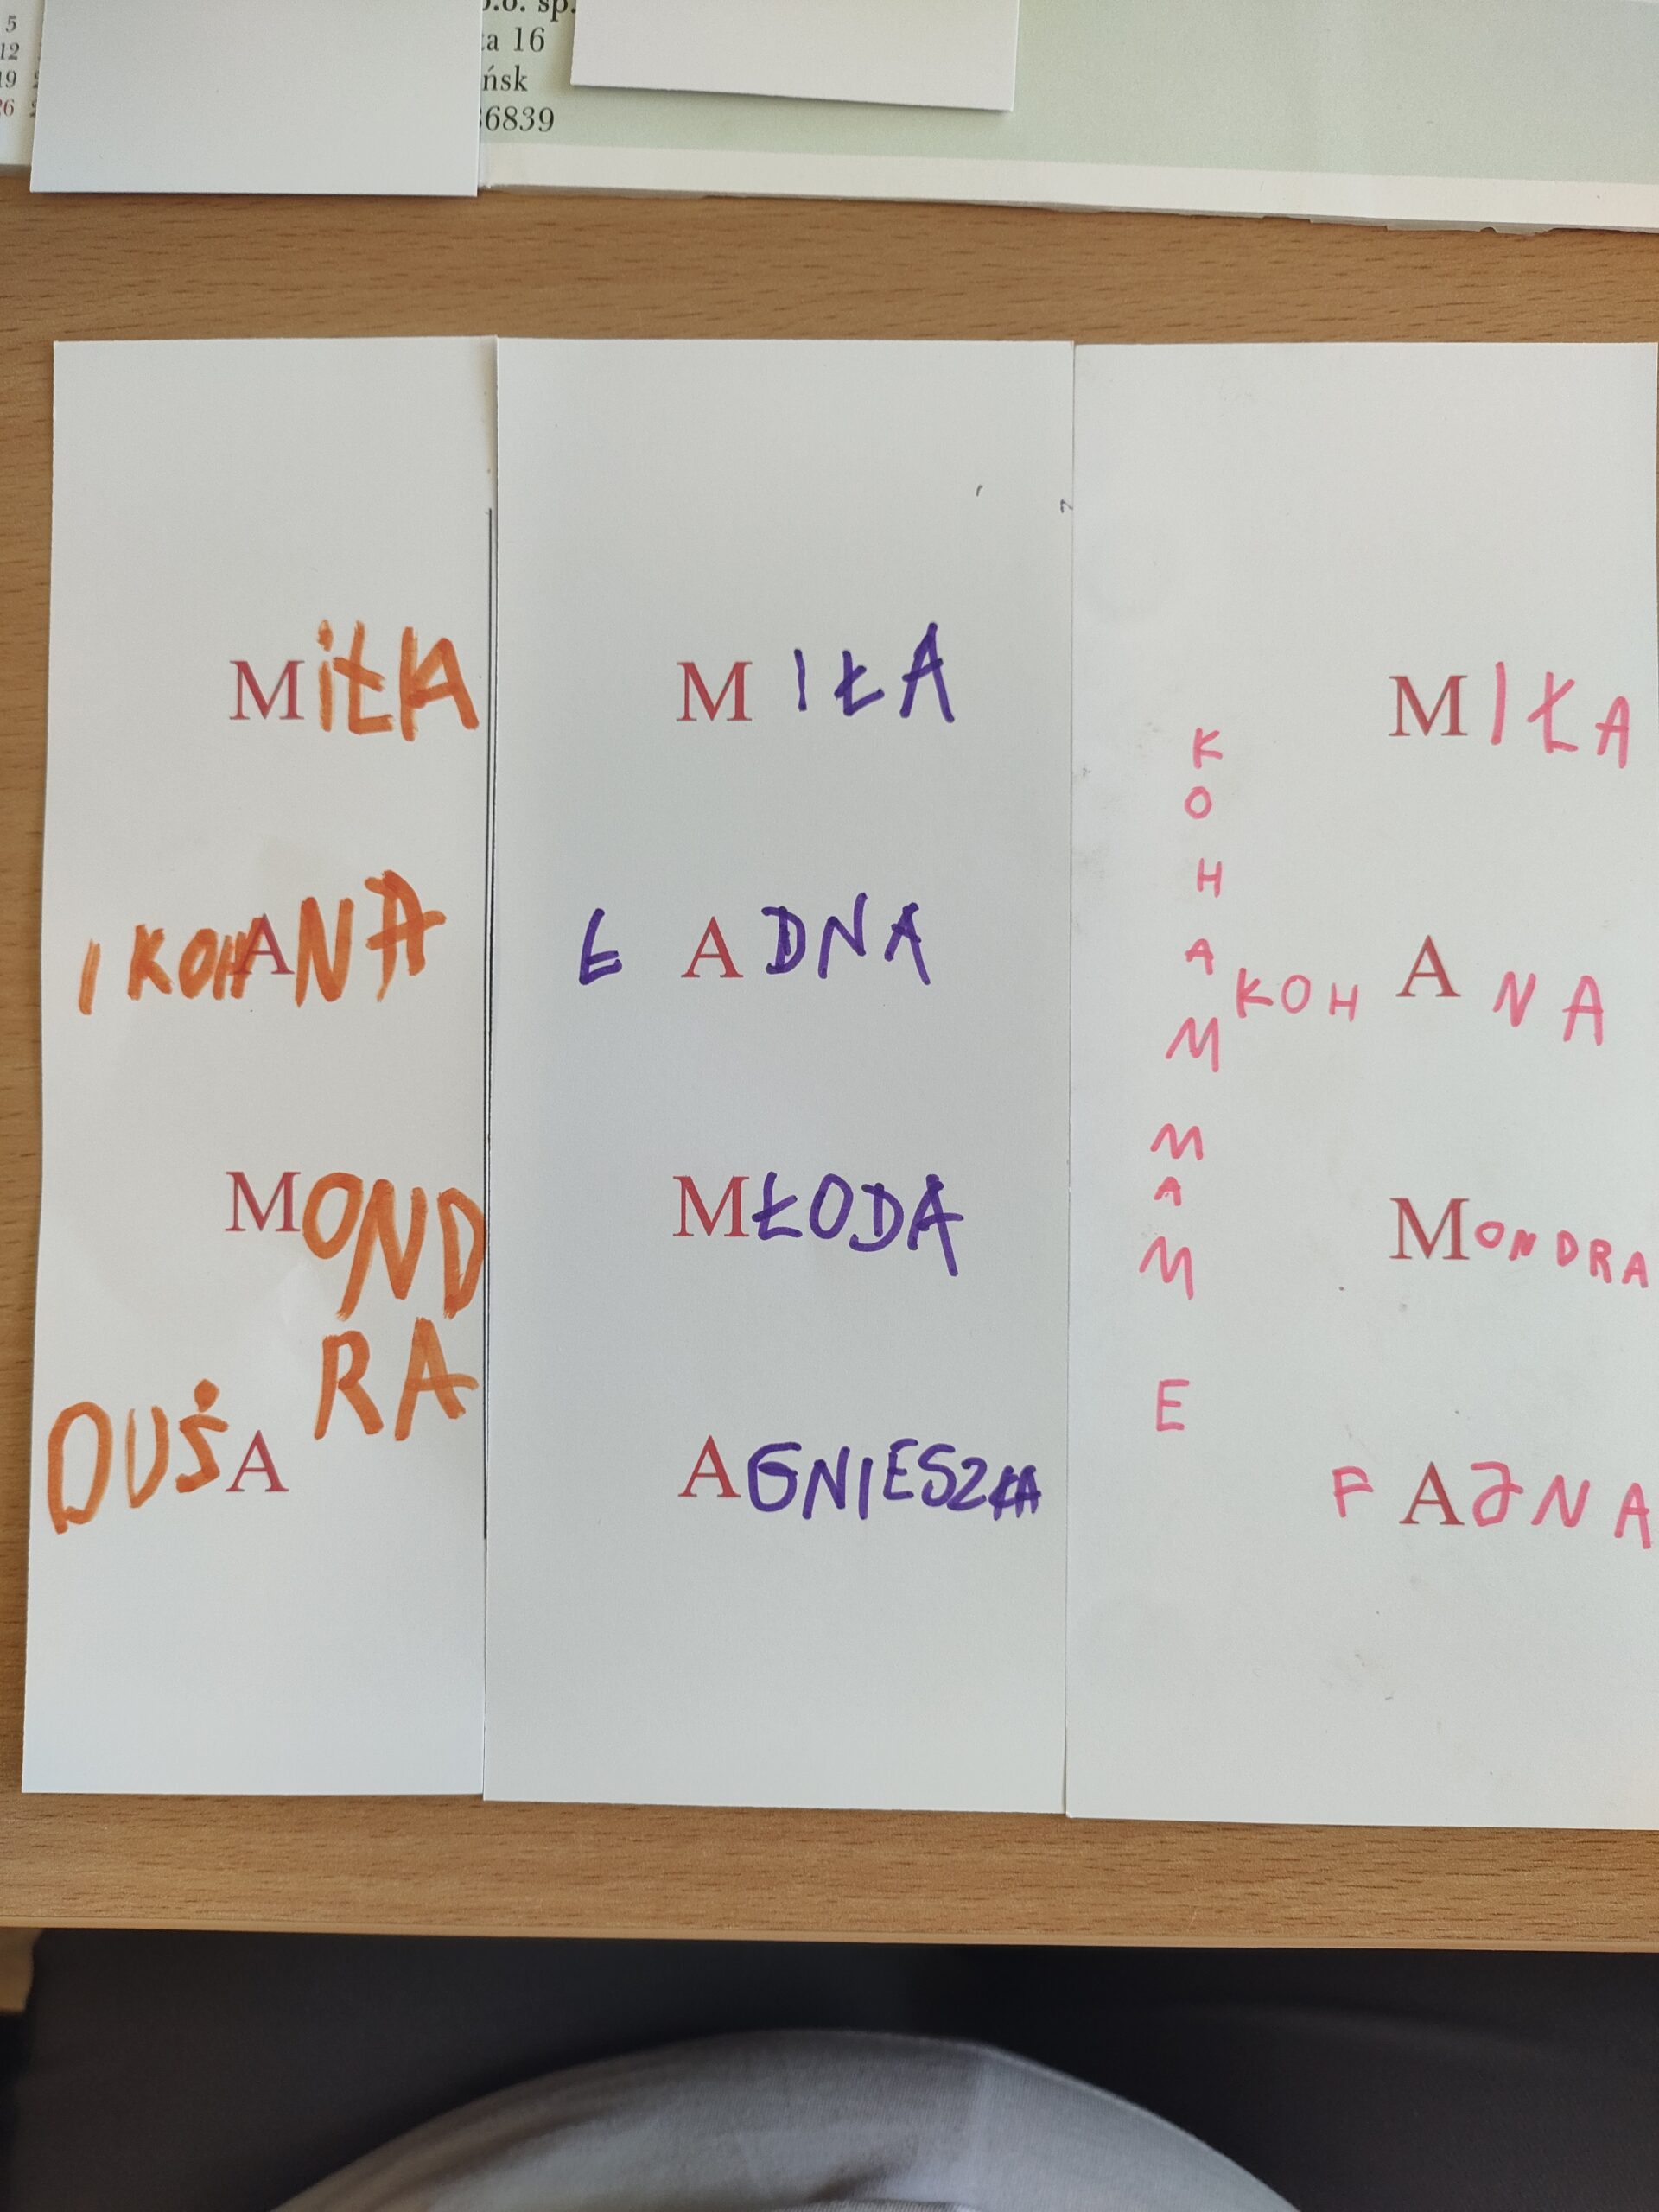 5
12
19
26
sp.
16
6839
MIŁA
I KOHANA
MONDRA
DUŚA
MIŁA
ŁADNA
MŁODA
AGNIESZKA
KOHAM MAME
MIŁA
KOHANA
MONDRA
FAJNA